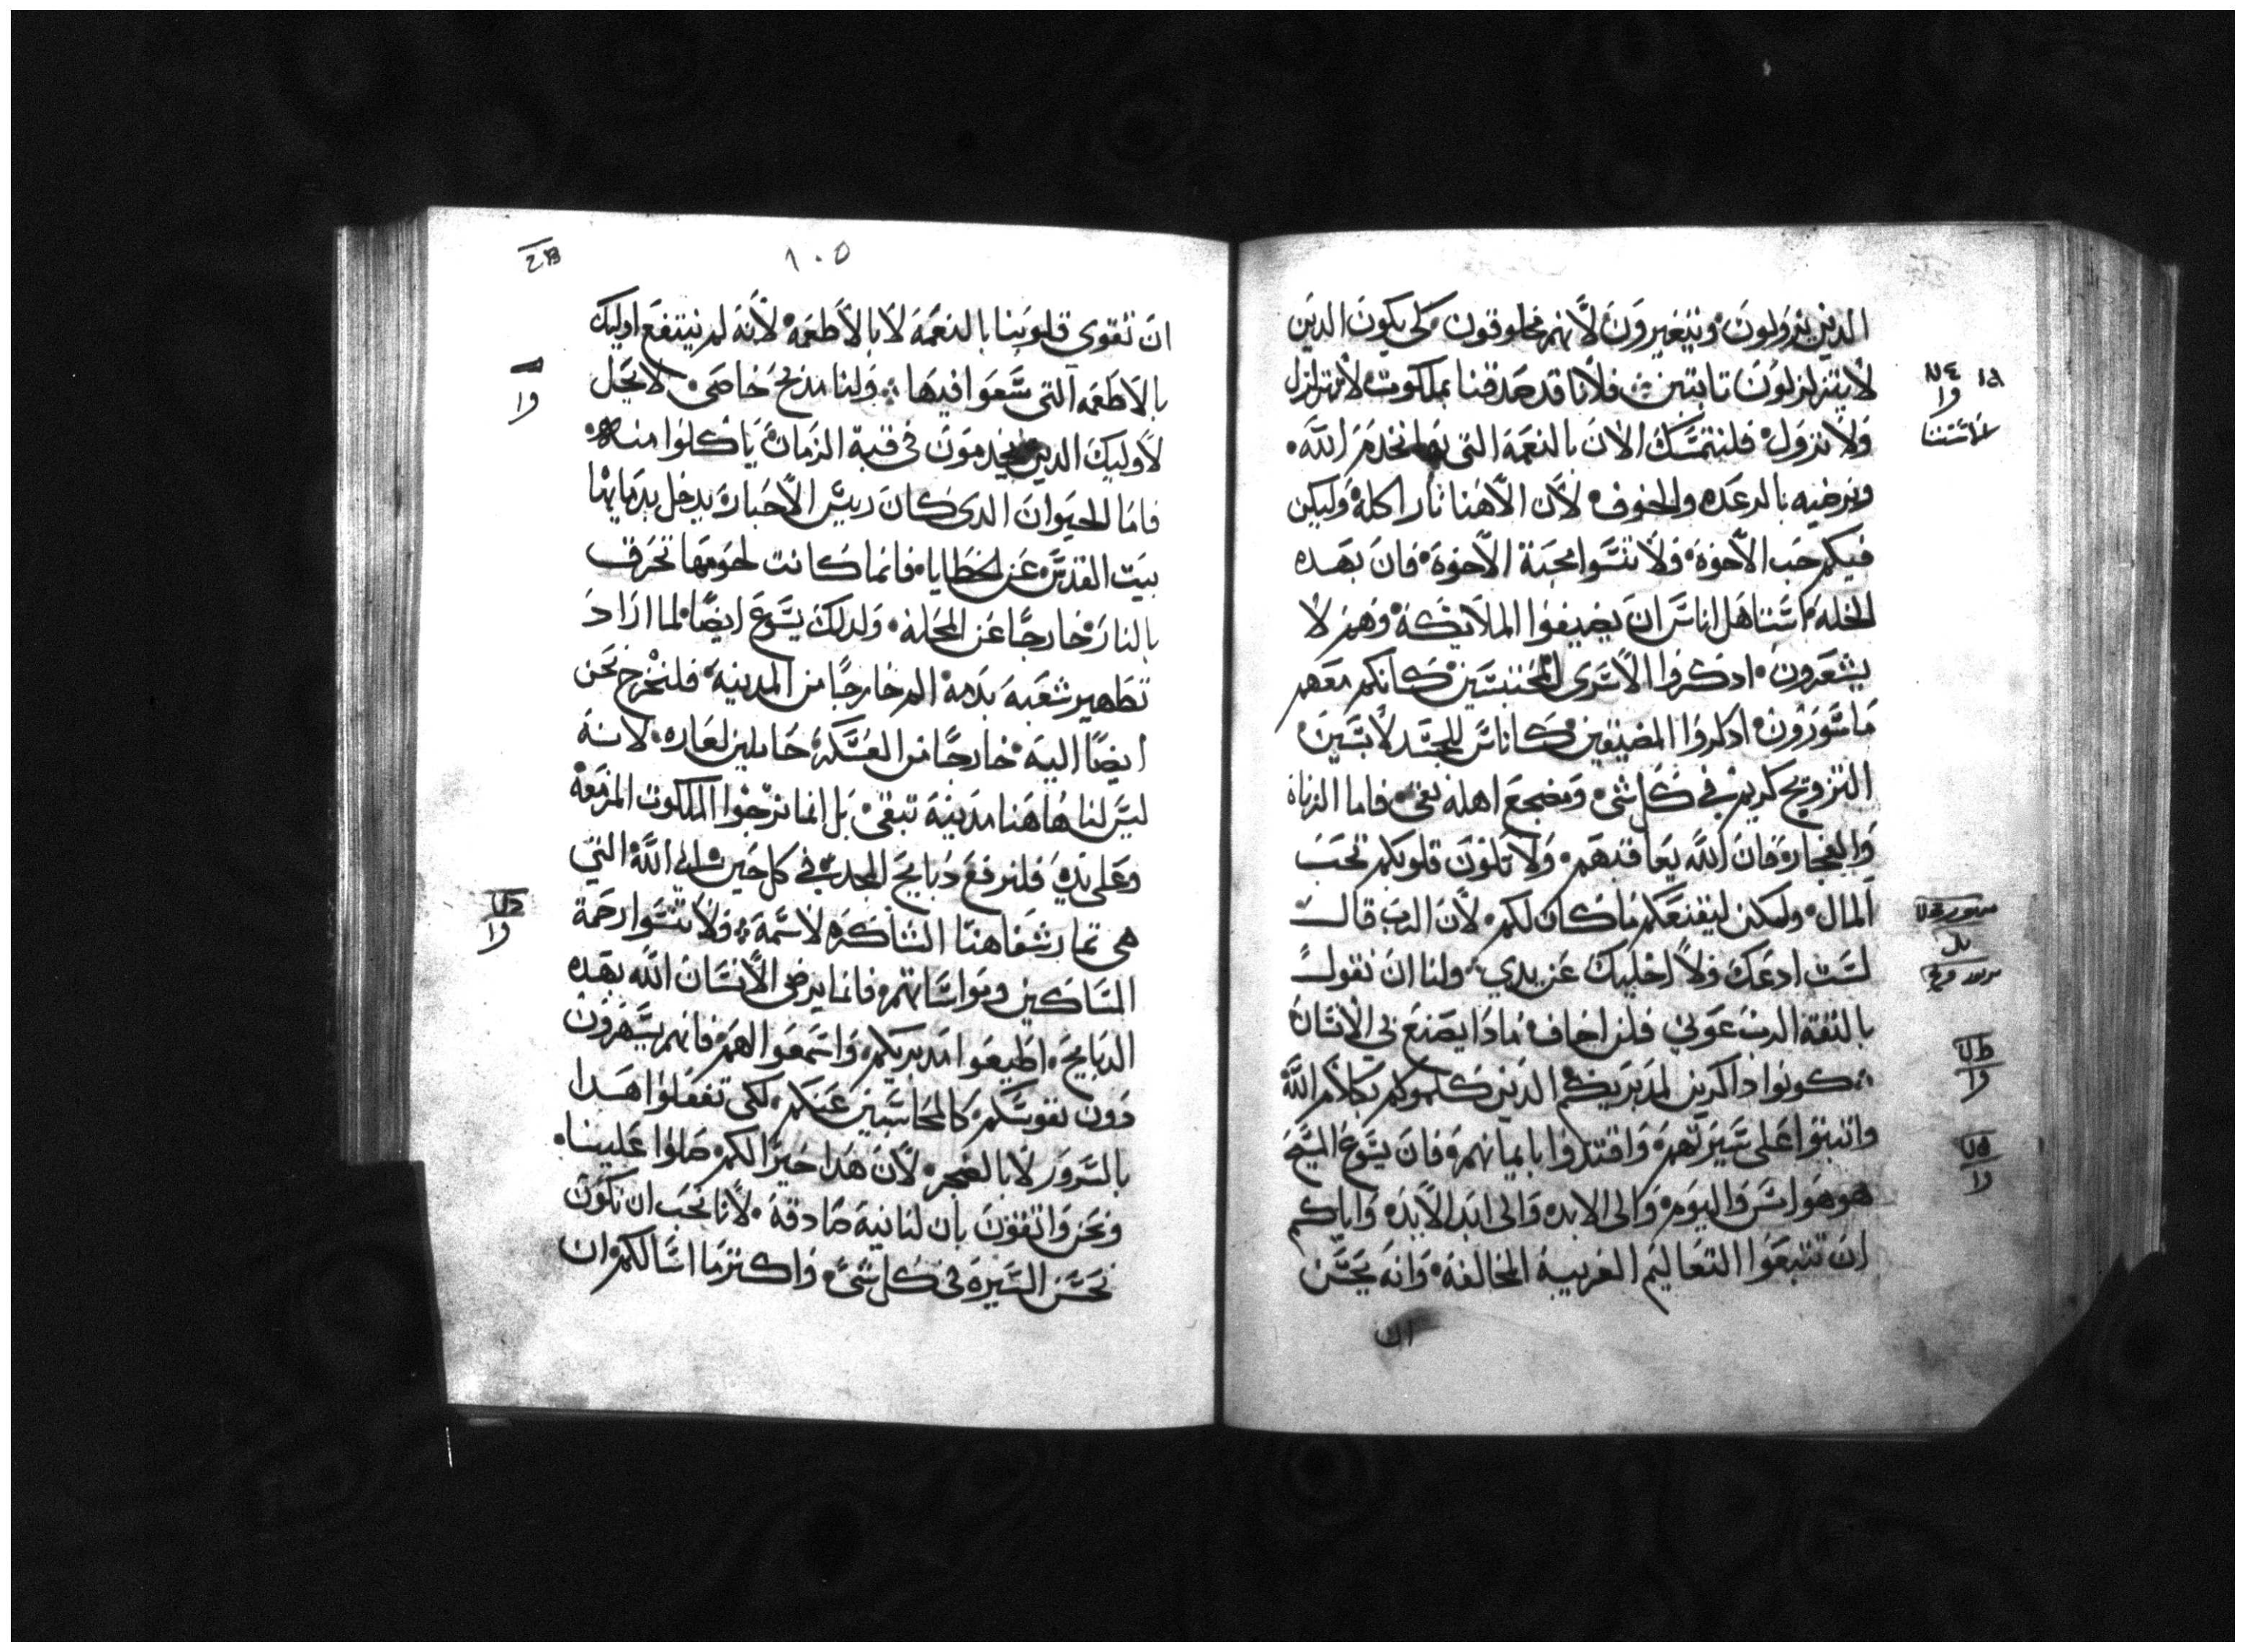 الدين يزولون، ويتغيرون لأنهم مخلوقون كي يكون الدين
لا يتزلزلون تابتين فلأنا قد صدقنا بملكوت لا تتزلزل
ولا تزول، فلنتمسك الان بالنعمة التي بها نخدم الله.
ونرضيه بالرعده والخوف لأن الاهنا نار اكلة وليكن
فيكم حب الأخوة، ولا تنسوا محبة الأخوة، فان بهده
الخلة استاهل اناس ان يضيفوا الملايكة وهم لا
يشعرون، ادكروا الأسرى المحتبسين كانكم معهم
ماسورون، ادكروا المضيقين كاناس للجسد لابسين
التزويج كريم في كل شي، ومضجع اهله نقي، فاما الزناه
والفجاره فان الله يعاقبهم، ولا تكون قلوبكم تحب
المال، ولكن ليقنعكم ما كان لكم، لأن الرب قال
لست ادعك ولا اخليك عن يدي، ولنا ان نقول
بالثقة الرب عوني فلن اخاف مادا يصنع بي الأنسان
كونوا داكرين لمدبريكم الدين كلموكم بكلام الله
واثبتوا على سيرتهم، واقتدوا بايمانهم، فان يسوع المسيح
هو هو امس واليوم، والى الابد، والى ابد الأبد، واياكم
ان تتبعوا التعاليم الغريبة المخالفة، وانه يحسن
ان
١٠٥
ان تقوى قلوبنا بالنعمة لا بالأطعمة، لأنه لم ينتفع اوليك
بالأطعمه التي سعوا فيها، ولنا مذبح خاص، لا يحل
لأوليك الدين يخدمون في قبة الزمان، ياكلوا منه،
فاما الحيوان الدي كان رييس الأحبار، يدخل بدمايها
بيت القدس عن الخطايا، فانما كانت لحومها تحرق
بالنار خارجًا عن المحلة، ولدلك يسوع ايضًا لما اراد
تطهير شعبه بدمه، الم خارجًا من المدينة، فلنخرج نحن
ايضًا اليه، خارجًا من العسكر، حاملين لعاره، لانه
ليس لنا هاهنا مدينة تبقى، بل انما نرجوا الملكوت المزمعة
وعلى يديه فلنرفع دبايح المجد، في كل حين الى الله التي
هي تمار شفاهنا الشاكره لاسمه، ولا تنسوا رحمة
المساكين ومواساتهم، فانما يرضى الأنسان الله بهده
الدبايح، اطيعوا مدبريكم، واسمعوا لهم، فانهم يسهرون
دون نفوسكم كالمحاسبين عنكم، لكي تفعلوا هدا
بالسرور لا بالضجر، لأن هدا خيرًا لكم، صلوا علينا.
ونحن واثقون بان لنا نية صادقة، لأنا نحب ان نكون
نحسن السيره في كل شيء، واكتر ما اسالكم ان